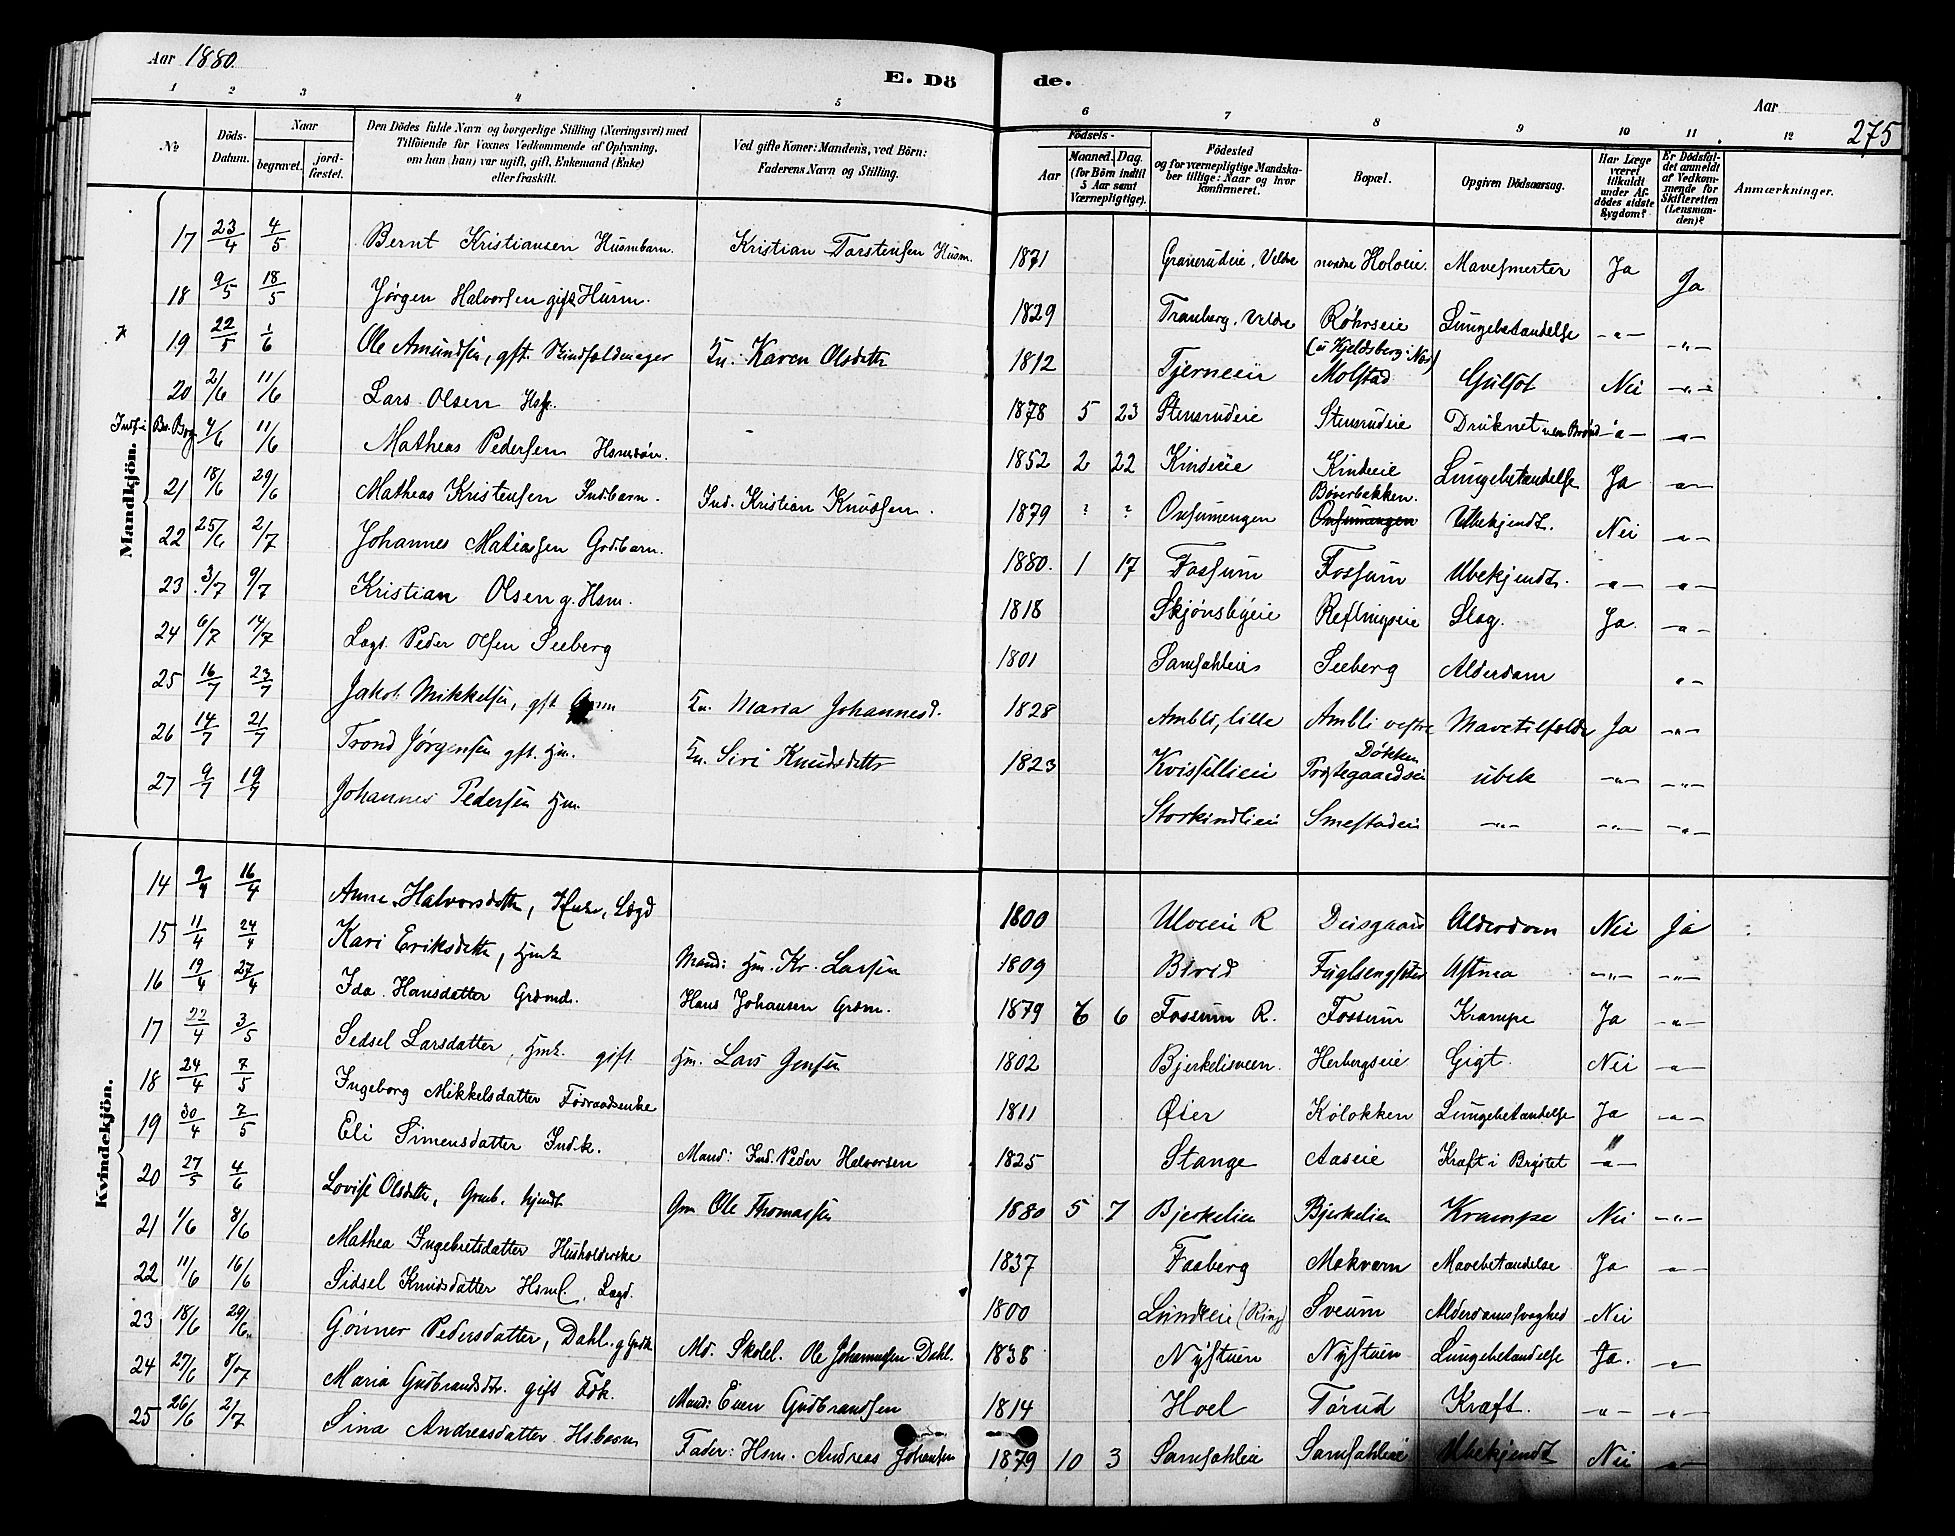 Aar 1880.
E. Dö
de.
Aar
275
1 2 3 4 5 6 7 8 9 10 11 12
No
Döds-Datum.
Naar
begravet.
jord-fæstet.
Den Dödes fulde Navn og borgerlige Stilling (Næringsvei) med
Tilföiende for Voxnes Vedkommende af Oplysning,
om han (hun) var ugift, gift, Enkemand (Enke)
eller fraskilt.
Ved gifte Koner: Mandens, ved Börn:
Faderens Navn og Stilling.
Födsels-
Aar
Maaned. Dag.
(for Börn indtil
5 Aar samt
Værnepligtige).
Födested
og for værnepligtige Mandska-
ber tillige: Naar og hvor
konfirmeret.
Bopæl.
Opgiven Dödsaarsag.
Har Læge
været
tilkaldt
under Af-
dödes sidste
Sygdom?
Er Dödsfal-
det anmeldt
af Vedkom-
mende for
Skifteretten
(Lensman-
den)?
Anmærkninger.
Mandkjön.
17 23/4 4/5 Bernt Kristiansen Husmbarn. Kristian Torstensen Husm. 1871 Granerudeie, Veldre nordre Holoeie. Mavesmerter Ja Ja
18 9/5 18/5 Jørgen Halvorsen gift Husm. 1829 Tranberg, Veldre Röhrseie Lungebetændelse -"- -"-
19 22/5 1/6 Ole Amundsen, gft. Skindfældmager Ku.: Karen Olsdatter 1812 Tjerneeie (ü Kjeldsberg i Næs) Molstad Gulsot Nei -"-
20 2/6 11/6 Lars Olsen Hsf. 1878 5 23 Stensrudeie Stensrudeie Druknet i en Brønd -"- -"-
4/6 11/6 Mathias Pedersen Hsmsøn. 1852 2 22 Kindeeie Kindeeie Lungebetændelse Ja -"-
21 18/6 29/6 Mathias Kristensen Indbarn. Ind. Kristian Knudsen. 1879 ? ? Onsumengen Bøverbakken. Ubekjendt. Nei -"-
22 25/6 2/7 Johannes Matiasen Grdbarn. 1880. 1 17 Fossum Fossum Ubekjendt. -"- -"-
23 3/7 9/7 Kristian Olsen g. Hsm. 1818 Skjønsbyeie Reflingseie Slag. Ja -"-
24 6/7 14/7 Lagd. Peder Olsen Seeberg 1801 Samsahleie Seeberg Alderdom "-
25 16/7 23/7 Jakob Mikkelsen, gft Ku. Maria Johannesd. 1828 Ambli, lille Ambli vestre Mavetilfælde Ja -"-
26 14/7 21/7 Trond Jørgensen gft. Hm. Ku. Siri Knudsdatter 1823 Kvissellieie Døkken Præstegaardseie ubek -"- -"-
27 9/7 19/7 Johannes Pedersen Hm. Storkindlieie Smestadeie -"- -"- -"-
Kvindekjön.
14 9/4 16/4 Anne Halvorsdatter, Enke, Lægd 1800 Uloeie R Alderdom Nei Ja
15 11/4 24/4 Kari Eriksdatter, Hmk Mand: Hm. Kr. Larsen 1809 Birid Fuglsengseter Astma -"- -"-
16 19/4 27/4 Ida Hansdatter Grdmd. Hans Johansen Grdm. 1879 6 6 Fossum R. Fossum Krampe Ja -"-
17 22/4 3/5 Sidsel Larsdatter, Hmk. gift Hm. Lars Jensen 1802 Bjerkelisveen. Herbergseie Gigt. Nei -"-
18 24/4 7/5 Ingeborg Mikkelsdatter Föraadsenke 1811 Øier Kolokken Lungebetændelse Ja -"-
19 30/4 7/5 Eli Simensdatter Indk. Mand: Ind. Peder Halvorsen 1825 Stange Aaseie Kræft i Brystet -"-
20 27/5 4/6 Lovise Olsdatter, Grmb. hjmdt Gm Ole Thomassen 1880 5 7 Bjerkelien Bjerkelien Krampe Nei -"-
21 1/6 8/6 Mathea Ingebretsdatter Husholderske 1837 Faaberg Mokvern Mavebetændelse Ja -"-
22 11/6 16/6 Sidsel Knudsdatter Hsm. Lægd. 1800 Lundeeie (Ring) Sveum Alderdomssvaghed Nei
23 18/6 29/6 Gönner Pedersdatter, Dahl. g Md. Skolel. Ole Johannessen Dahl. 1838 Nystuen Nystuen Lungebetændelse Ja. -"-
24 27/6 8/7 Maria Gudbrandsdtr. gift Fdk. Mand: Even Gudbrandsen 1814 Hoel Torud Kræft. -"- -"-
25 26/6 2/7 Sina Andreasdatter Hsbarn Fader: Hsm. Andreas Johansen 1879 10 3 Samsahleie Samsahleie Ubekjendt Nei -"-